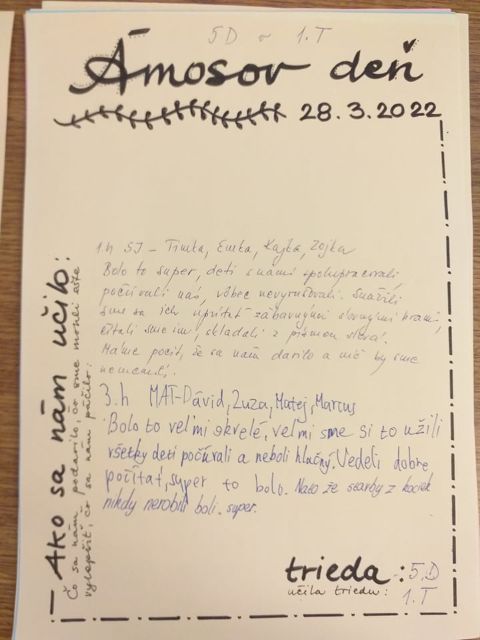 5D v 1.T
Ámosov deň
28.3.2022
Ako sa nám učilo:
Čo sa nám podarilo, čo sme mohli ešte
vylepšiť, čo sa nám páčilo:
1.h SJ – Timka, Emka, Kajka, Zojka
Bolo to super, deti s nami spolupracovali,
počúvali nás, vôbec nevyrušovali. Snažili
sme sa ich upútať zábavnými slovnými hrami,
čítali sme im, skladali z písmen slová.
Máme pocit, že sa nám darilo a nič by sme
nemenili.
3.h MAT-Dávid, Zuza, Matej, Marcus
Bolo to veľmi skvelé, veľmi sme si to užili
všetky deti počúvali a neboli hlučný. Vedeli dobre
počítať, super to bolo. že stavby z kociek
nikdy nerobili boli super.
trieda: 5.D
učila triedu: 1.T